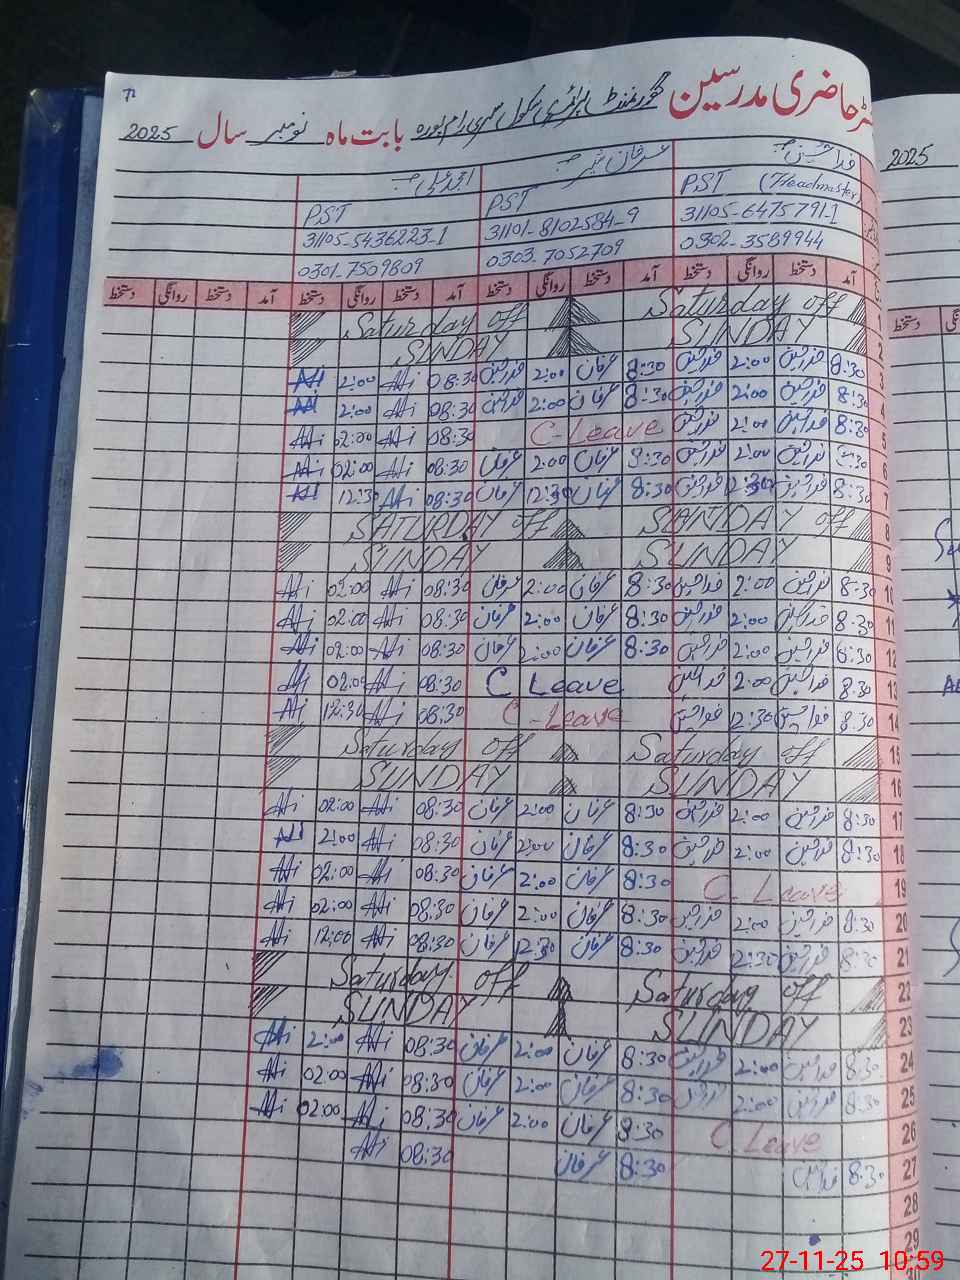 رجسٹر حاضری مدرسین گورنمنٹ پرائمری سکول بابت ماہ نومبر سال 2025
2025
فدا حسین PST (Headmaster) 31105-6475791-1 0302-3589944
عرفان PST 31101-8102584-9 0303-7052709
PST 31105-5436223-1 0301-7509809
آمد دستخط روانگی دستخط آمد دستخط روانگی دستخط آمد دستخط روانگی دستخط آمد دستخط روانگی دستخط
1 Saturday off Saturday off
2 SUNDAY SUNDAY
3 8:30 فدا حسین 2:00 فدا حسین 8:30 عرفان 2:00 08:30 Ali 2:00 Ali
4 8:30 فدا حسین 2:00 فدا حسین 8:30 عرفان 2:00 08:30 Ali 2:00 Ali
5 8:30 فدا حسین 2:00 فدا حسین C-Leave 08:30 Ali 02:00 Ali
6 8:30 فدا حسین 2:00 فدا حسین 8:30 عرفان 2:00 عرفان 08:30 Ali 02:00 Ali
7 8:30 فدا حسین 12:30 فدا حسین 8:30 عرفان 12:30 عرفان 08:30 Ali 12:30 Ali
8 off SATURDAY off
9 SUNDAY SUNDAY
10 8:30 فدا حسین 2:00 فدا حسین 8:30 عرفان 2:00 عرفان 08:30 Ali 02:00 Ali
11 8:30 فدا حسین 2:00 فدا حسین 8:30 عرفان 2:00 عرفان 08:30 Ali 02:00 Ali
12 8:30 فدا حسین 2:00 فدا حسین 8:30 عرفان 2:00 عرفان 08:30 Ali 02:00 Ali
13 8:30 فدا حسین 2:00 فدا حسین C Leave 08:30 Ali 02:00 Ali
14 8:30 فدا حسین 12:30 فدا حسین C-Leave 08:30 Ali 12:30 Ali
15 Saturday off Saturday off
16 SUNDAY SUNDAY
17 8:30 فدا حسین 2:00 فدا حسین 8:30 عرفان 2:00 عرفان 08:30 Ali 02:00 Ali
18 8:30 فدا حسین 2:00 فدا حسین 8:30 عرفان 2:00 عرفان 08:30 Ali 2:00 Ali
19 C. Leave 8:30 عرفان 2:00 عرفان 08:30 Ali 02:00 Ali
20 8:30 فدا حسین 2:00 فدا حسین 8:30 عرفان 2:00 عرفان 08:30 Ali 02:00 Ali
21 8:30 فدا حسین 12:30 فدا حسین 8:30 عرفان 12:30 عرفان 08:30 Ali 12:00 Ali
22 Saturday off Saturday off
23 SUNDAY SUNDAY
24 8:30 فدا حسین 2:00 فدا حسین 8:30 عرفان 2:00 عرفان 08:30 Ali 2:00 Ali
25 8:30 فدا حسین 2:00 فدا حسین 8:30 عرفان 2:00 عرفان 08:30 Ali 02:00 Ali
26 C Leave 8:30 عرفان 2:00 عرفان 08:30 Ali 02:00 Ali
27 8:30 فدا حسین 8:30 عرفان 08:30 Ali
28
29
27-11-25 10:59